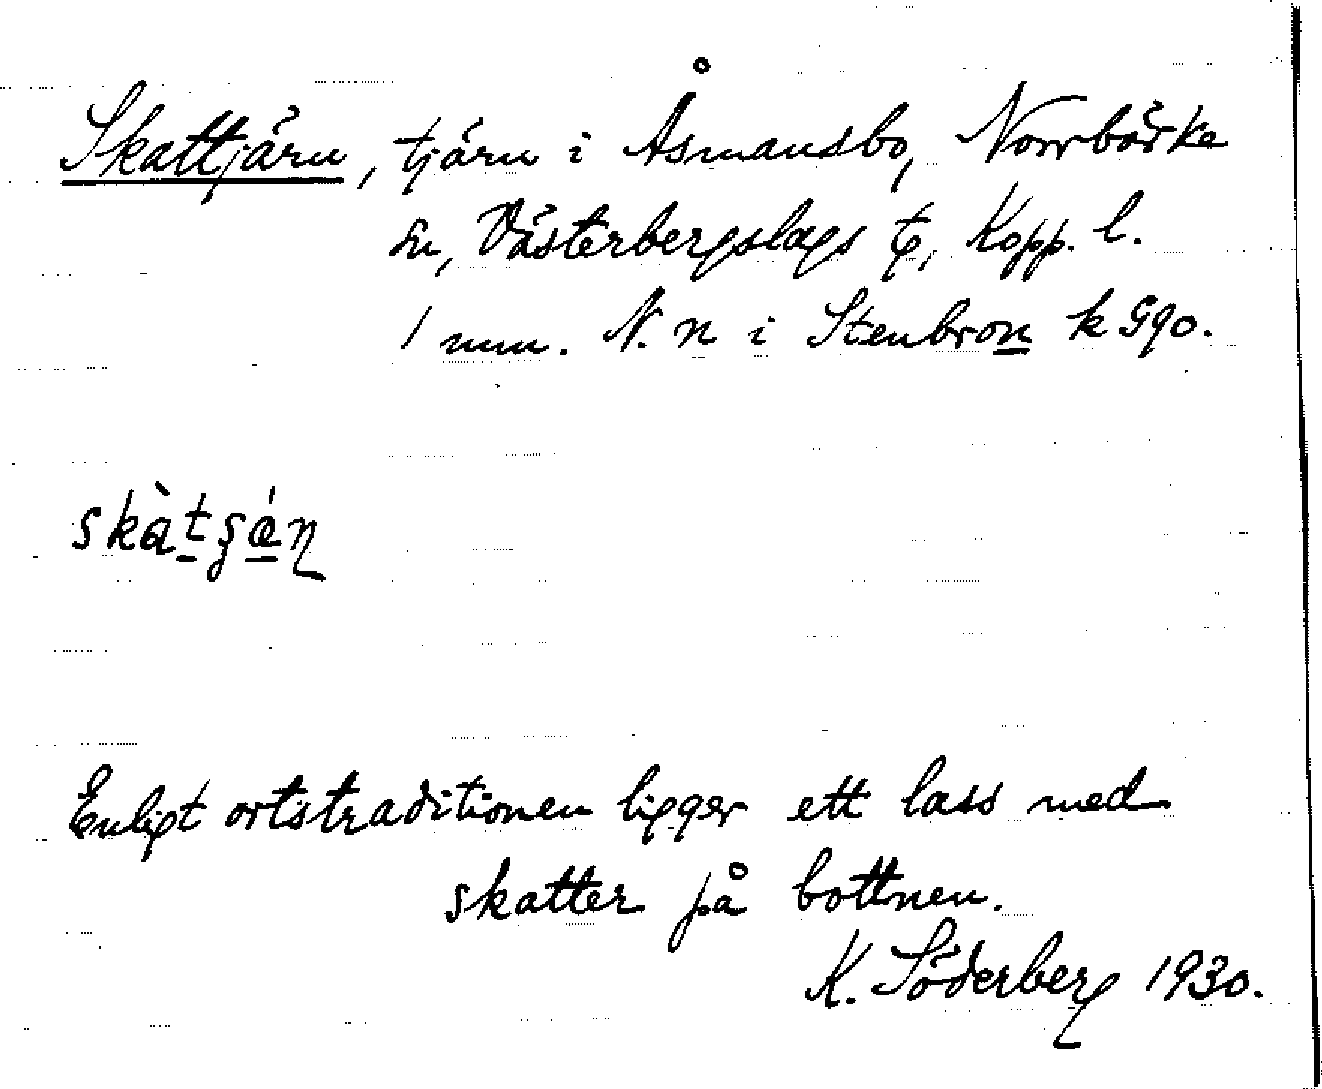 Skattjärn, tjärn i Åsmansbo, Norrbärke
sn, Västerbergslags tg, Kopp. l.
1 mm. N. n i Stenbron k 590.
skàtʂǽɳ
Enligt ortstraditionen ligger ett lass med
skatter på bottnen.
K. Söderberg 1930.